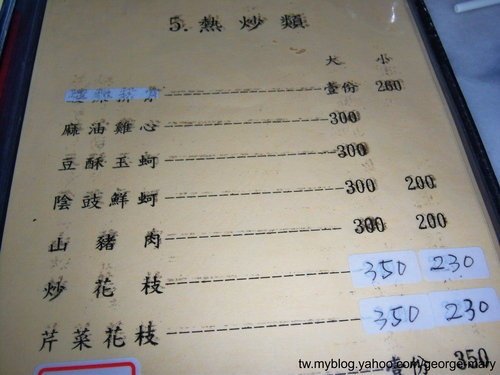 5. 熱炒類
大 小
壹份 280
麻油雞心 300
豆酥玉蚵 300
陰豉鮮蚵 300 200
山豬肉 300 200
炒花枝 350 230
芹菜花枝 350 230
壹份 350
tw.myblog.yahoo.com/georgemary